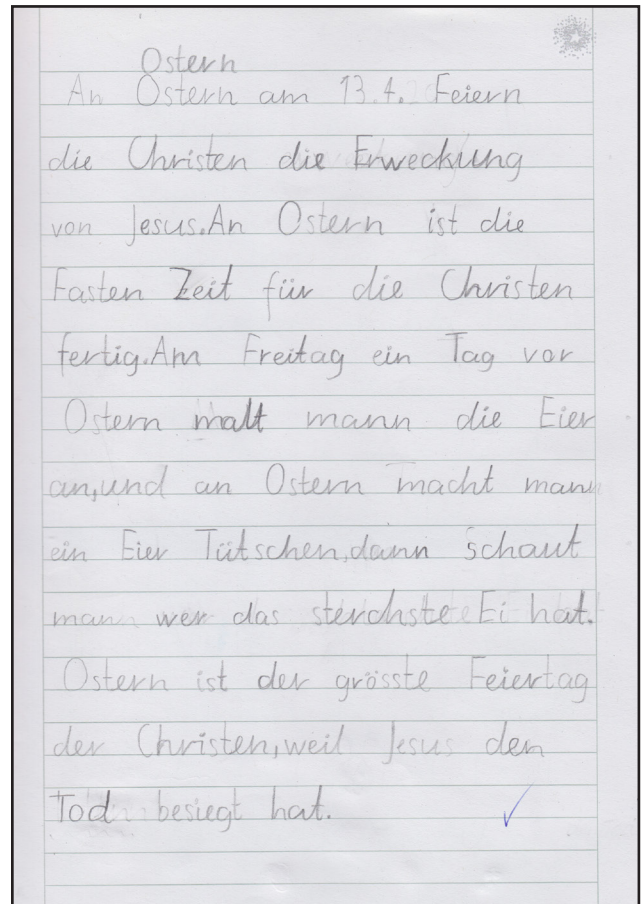 Ostern
An Ostern am 13.4. Feiern
die Christen die Erweckung
von Jesus.An Ostern ist die
Fasten Zeit für die Christen
fertig.Am Freitag ein Tag vor
Ostern malt mann die Eier
an,und an Ostern macht mann
ein Eier Tütschen,dann schaut
mann wer das sterchste Ei hat.
Ostern ist der grösste Feiertag
der Christen,weil Jesus den
Tod besiegt hat.